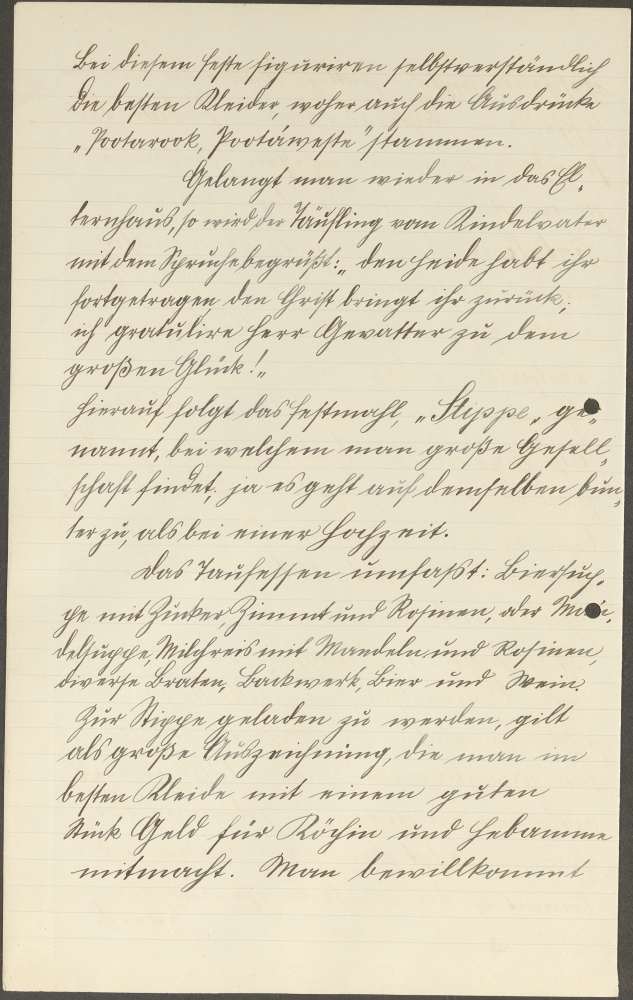 Bei diesem Feste figuriren selbstverständlich
die besten Kleider, woher auch die Ausdrücke
„Pootarook, Pootáweste" stammen.
Gelangt man wieder in das El„
ternhaus, so wird der Täufling vom Kindelvater
mit dem Spruche begrüßt: „den Heide habt ihr
fortgetragen den Christ bringt ihr zurück;
ich gratulire Herr Gevatter zu dem
großen Glück!„
Hierauf folgt das Festmahl, „Stippe„ ge„
nannt, bei welchem man große Gesell„
schaft findet, ja es geht auf demselben bun„
ter zu, als bei einer Hochzeit.
Das Taufessen umfaßt: Biersup„
pe mit Zucker, Zimmt und Rosinen, oder Man„
delsuppe, Milchreis mit Mandeln und Rosinen,
diverse Braten, Backwerk, Bier und Wein.
Zur Stippe geladen zu werden, gilt
als große Auszeichnung, die man im
besten Kleide mit einem guten
Stück Geld für Köchin und Hebamme
mitmacht. Man bewillkommt